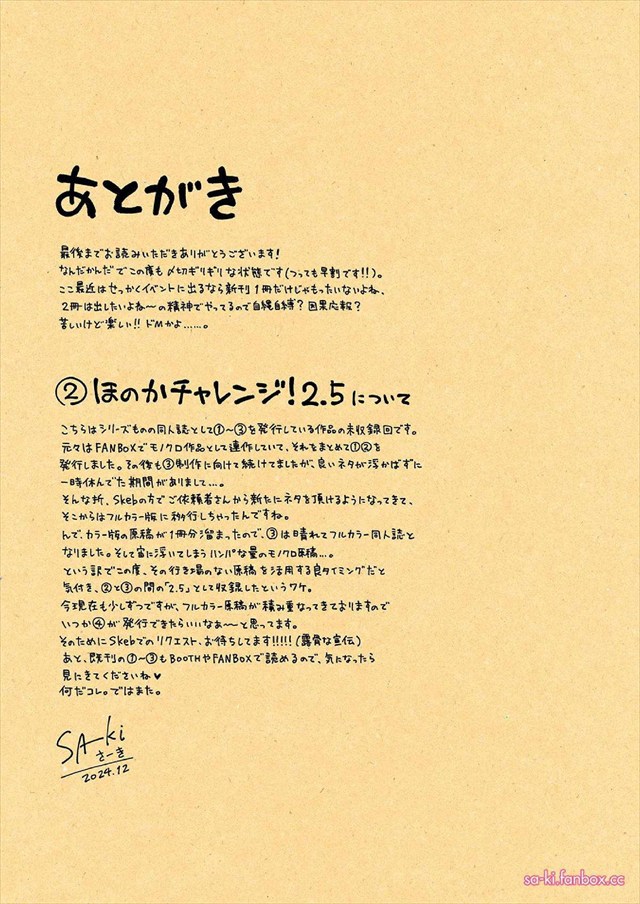 あとがき
最後までお読みいただきありがとうございます!
なんだかんだでこの度も〆切ギリギリな状態です(つっても早割です!!)。
ここ最近はせっかくイベントに出るなら新刊1冊だけじゃもったいないよね、
2冊は出したいよね〜の精神でやってるので自縄自縛?因果応報?
苦しいけど楽しい!!ドMかよ……。
②ほのかチャレンジ!2.5について
こちらはシリーズものの同人誌として①〜③を発行している作品の未収録回です。
元々はFANBOXでモノクロ作品として連作していて、それをまとめて①②を
発行しました。その後も③制作に向けて続けてましたが、良いネタが浮かばずに
一時休んでた期間がありまして…。
そんな折、Skebの方でご依頼者さんから新たにネタを頂けるようになってきて、
そこからはフルカラー版に移行しちゃったんですね。
んで、カラー版の原稿が1冊分溜まったので、③は晴れてフルカラー同人誌と
なりました。そして宙に浮いてしまうハンパな量のモノクロ原稿…。
という訳でこの度、その行き場のない原稿を活用する良タイミングだと
気付き、②と③の間の「2.5」として収録したというワケ。
今現在も少しずつですが、フルカラー原稿が積み重なってきておりますので
いつか④が発行できたらいいなぁ〜と思ってます。
そのためにSkebでのリクエスト、お待ちしてます!!!!!(露骨な宣伝)
あと、既刊の①〜③もBOOTHやFANBOXで読めるので、気になったら
見にきてくださいね♥
何だコレ。ではまた。
SA-ki
さーき
2024.12
sa-ki.fanbox.cc